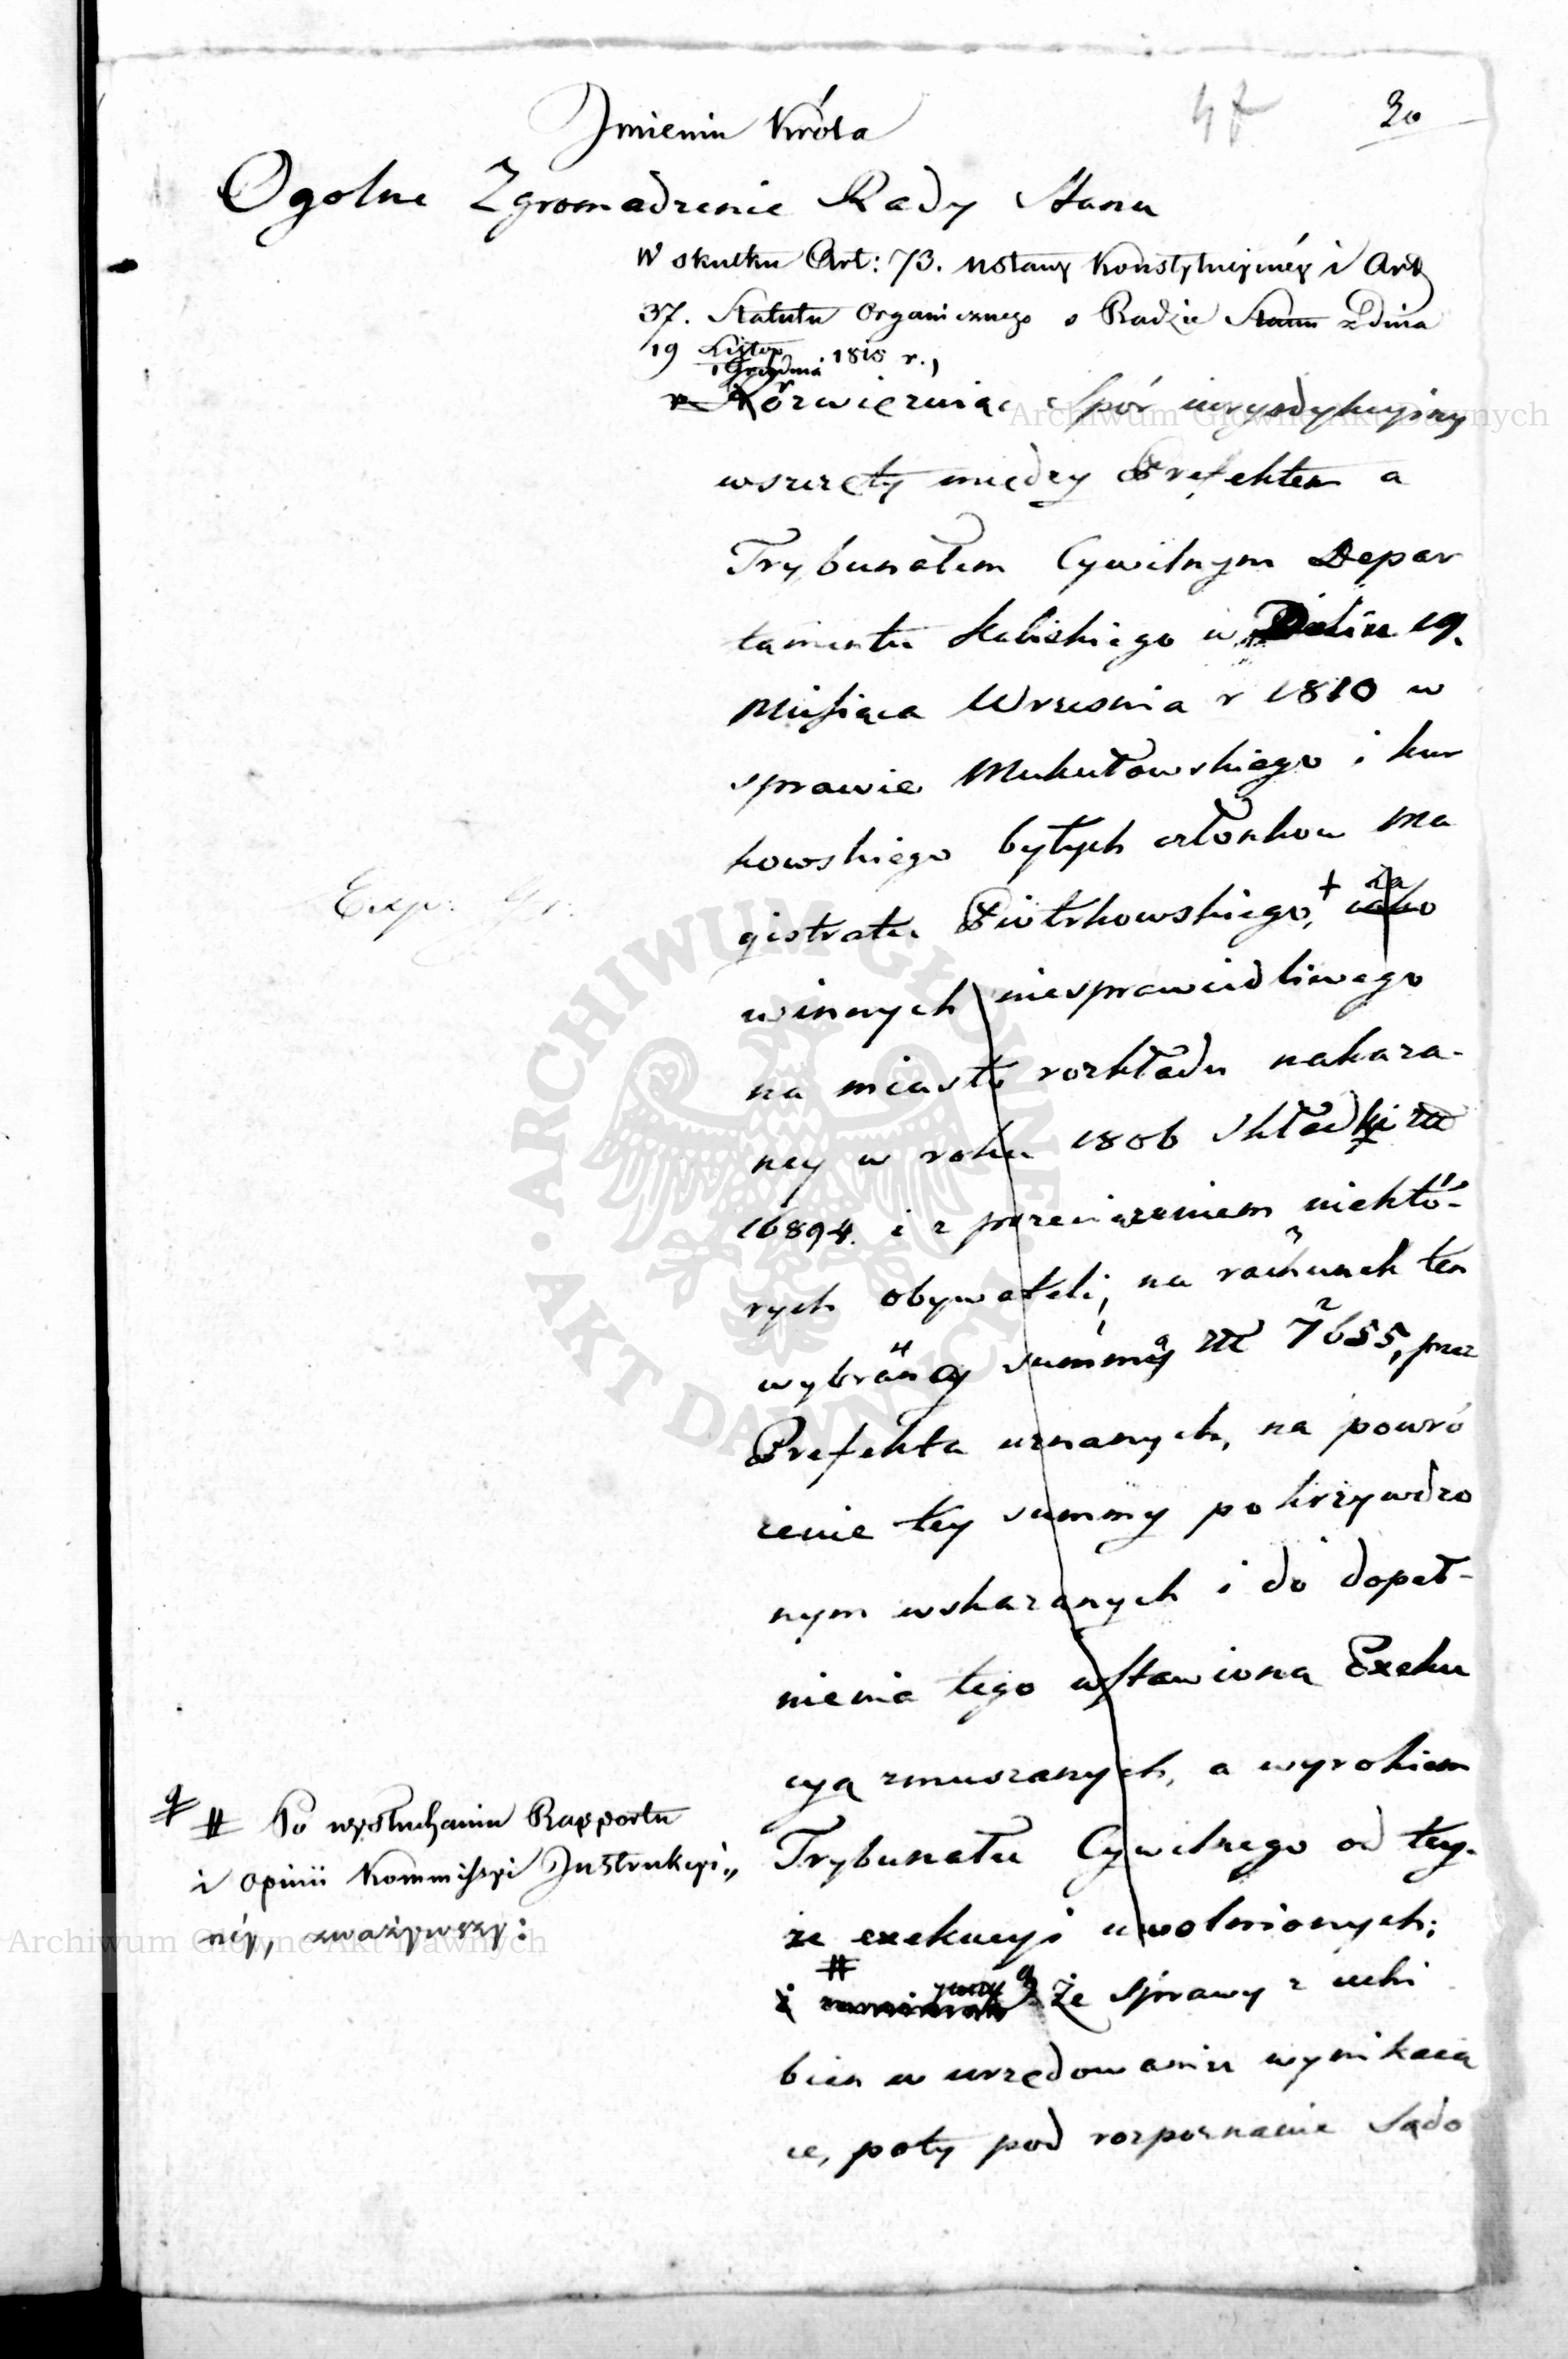 47 30
Jmieniu Króla
Ogolne Zgromadzenie Rady Stanu
W skutku Art: 73. Ustawy Konstytucyinéy i Art
37. Statutu Organicznego o Radzie Stanu z Dnia
19 Listop 1 Grudnia 1815 r.,
Rozwięzuiąc Spór iurysdykcyiny
wszczęty między Prefektem a
Trybunałem Cywilnym Depar
tamentu Kaliskiego w Dniu 19.
Miesiąca Wrzesnia r 1810 w
sprawie Mukułowskiego i kur
kowskiego byłych członkow Ma
gistratu Piotrkowskiego, + iako za
winnych niesprawiedliwego
na miasto rozkładu nakaza-
ney w roku 1806 składki złł
16894. i z przeciążeniem niektó-
rych obywateli, na rachunek ten
wybraney summy złł 7655, przez
Prefekta uznanych, na powró
cenie tey summy pokrzywdzo
nym wskazanych i do dopeł-
nienia tego wstawioną Exeku
cyą zmuszanych, a wyrokiem
Trybunału Cywilnego od tey-
że exekucyi uwolnionych;
# i Że sprawy z uchi
bien w urzędowaniu wynikaią
ce, poty pod rozpoznanie Sądo
Exp:
# Po wysłuchaniu Rapportu
i Opinii Kommissyi Jnstrukcyi„
néy, zważywszy:
Archiwum Główne Akt Dawnych
Archiwum Główne Akt Dawnych
ARCHIWUM GŁÓWNE · AKT DAWNYCH ·